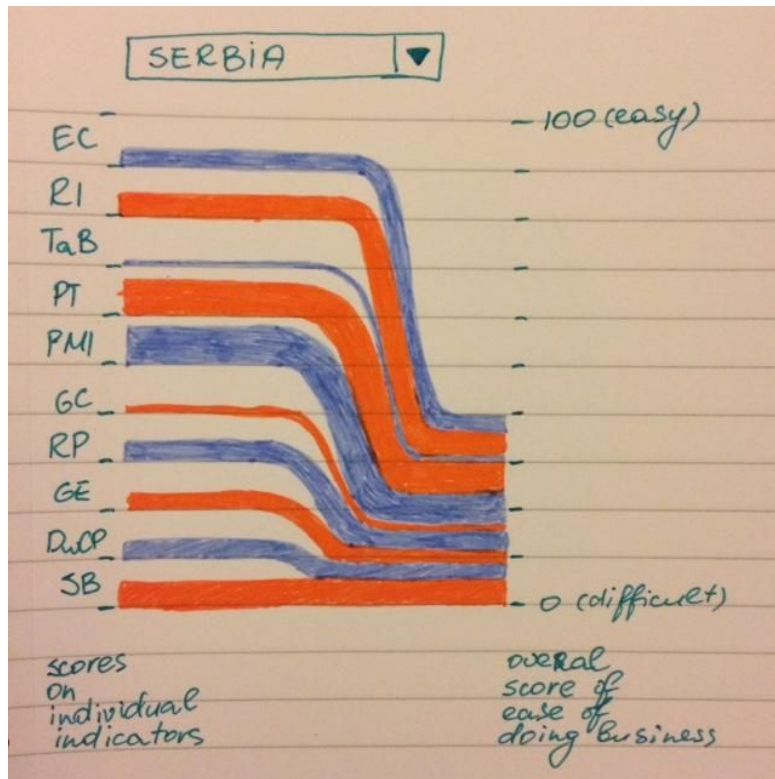 SERBIA
100 (easy)
EC
RI
TaB
PT
PMI
GC
RP
GE
DwCP
SB
0 (difficult)
scores
on
individual
indicators
overal
score of
ease of
doing business